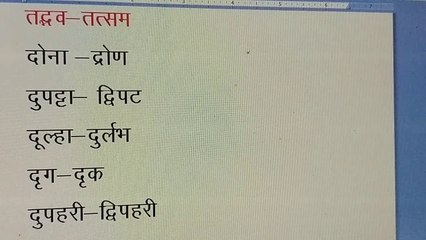 तद्भव–तत्सम
दोना –द्रोण
दुपट्टा– द्विपट
दूल्हा–दुर्लभ
दृग–दृक
दुपहरी–द्विपहरी